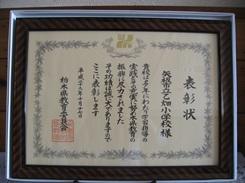 表彰状
矢板市立乙畑小学校様
貴校は多年にわたり学習指導の
実践とその充実に努め本県教育の
振興に尽力されました
その功績は誠に大でありますので
ここに表彰します
栃木県教育委員会